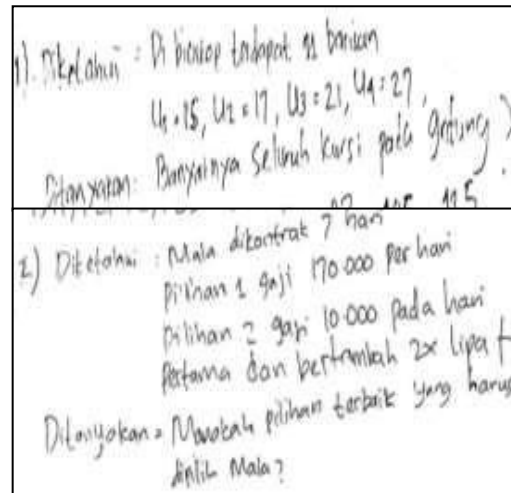 1). Diketahui : Di bioskop terdapat 11 barisan
U1 = 15, U2 = 17, U3 = 21, U4 = 27,
Ditanyakan : Banyaknya Seluruh kursi pada gedung
115.
2) Diketahui : Mala dikontrak 7 hari
pilihan 1 gaji 170.000 per hari
pilihan 2 gaji 10.000 pada hari
Pertama dan bertambah 2x lipat
Ditanyakan = Manakah pilihan terbaik yang harus
dipilih Mala?